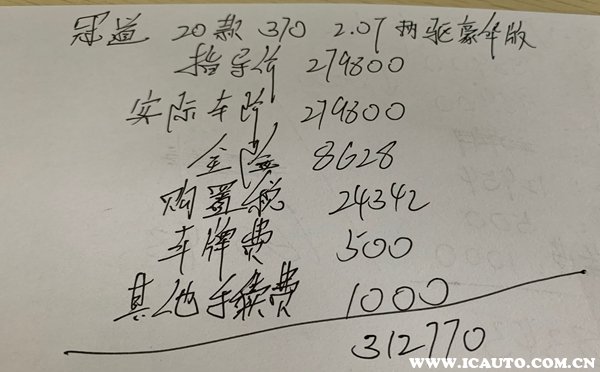 冠道 20款 370 2.0T 两驱豪华版
指导价 279800
实际车价 279800
全险 8628
购置税 24342
车牌费 500
其他手续费 1000
312770
爱卡汽车
www.ICAUTO.com.cn